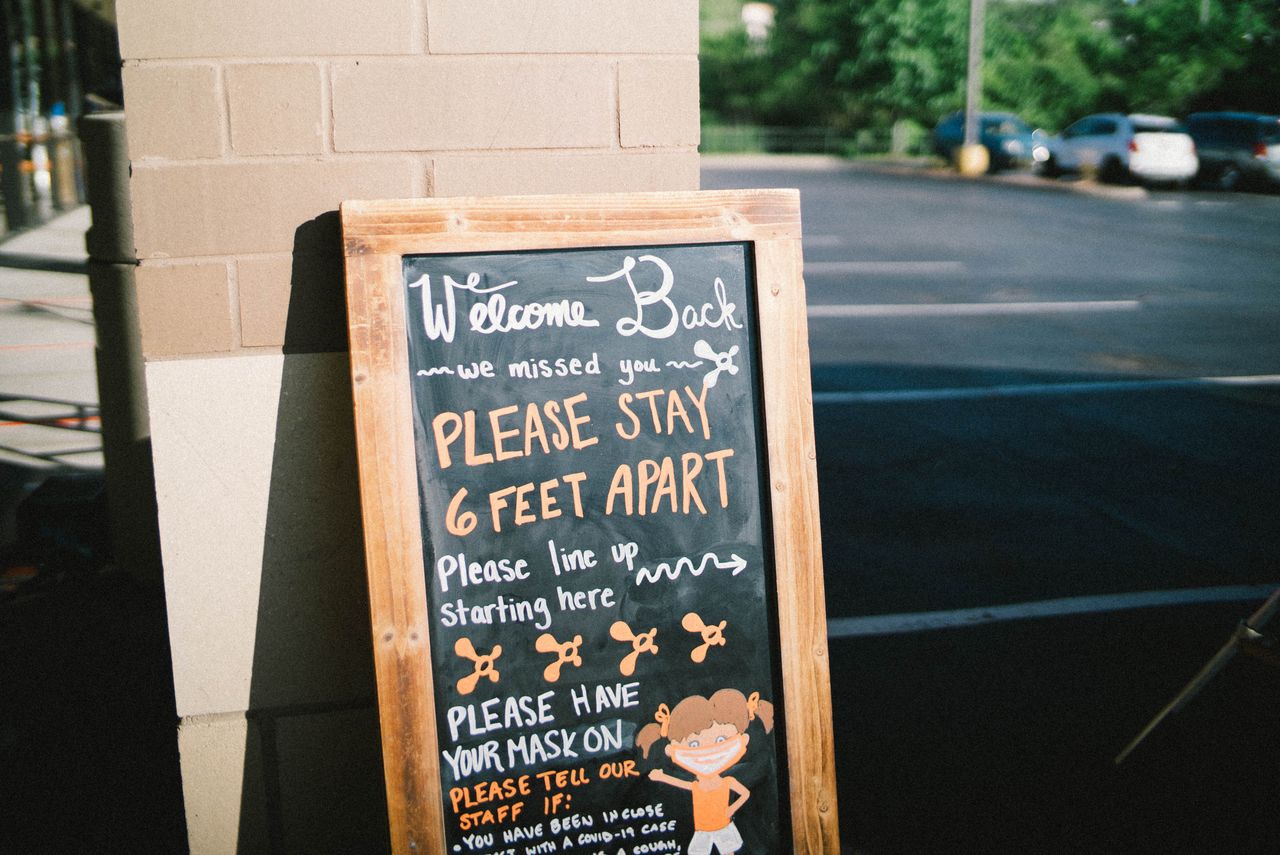 Welcome Back
we missed you
PLEASE STAY
6 FEET APART
Please line up
starting here
PLEASE HAVE
YOUR MASK ON
PLEASE TELL OUR
STAFF IF:
• YOU HAVE BEEN IN CLOSE
WITH A COVID-19 CASE
A COUGH,